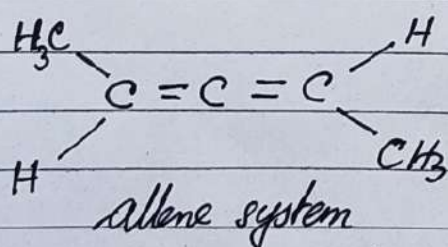 H₃C H
C = C = C
H CH₃
allene system